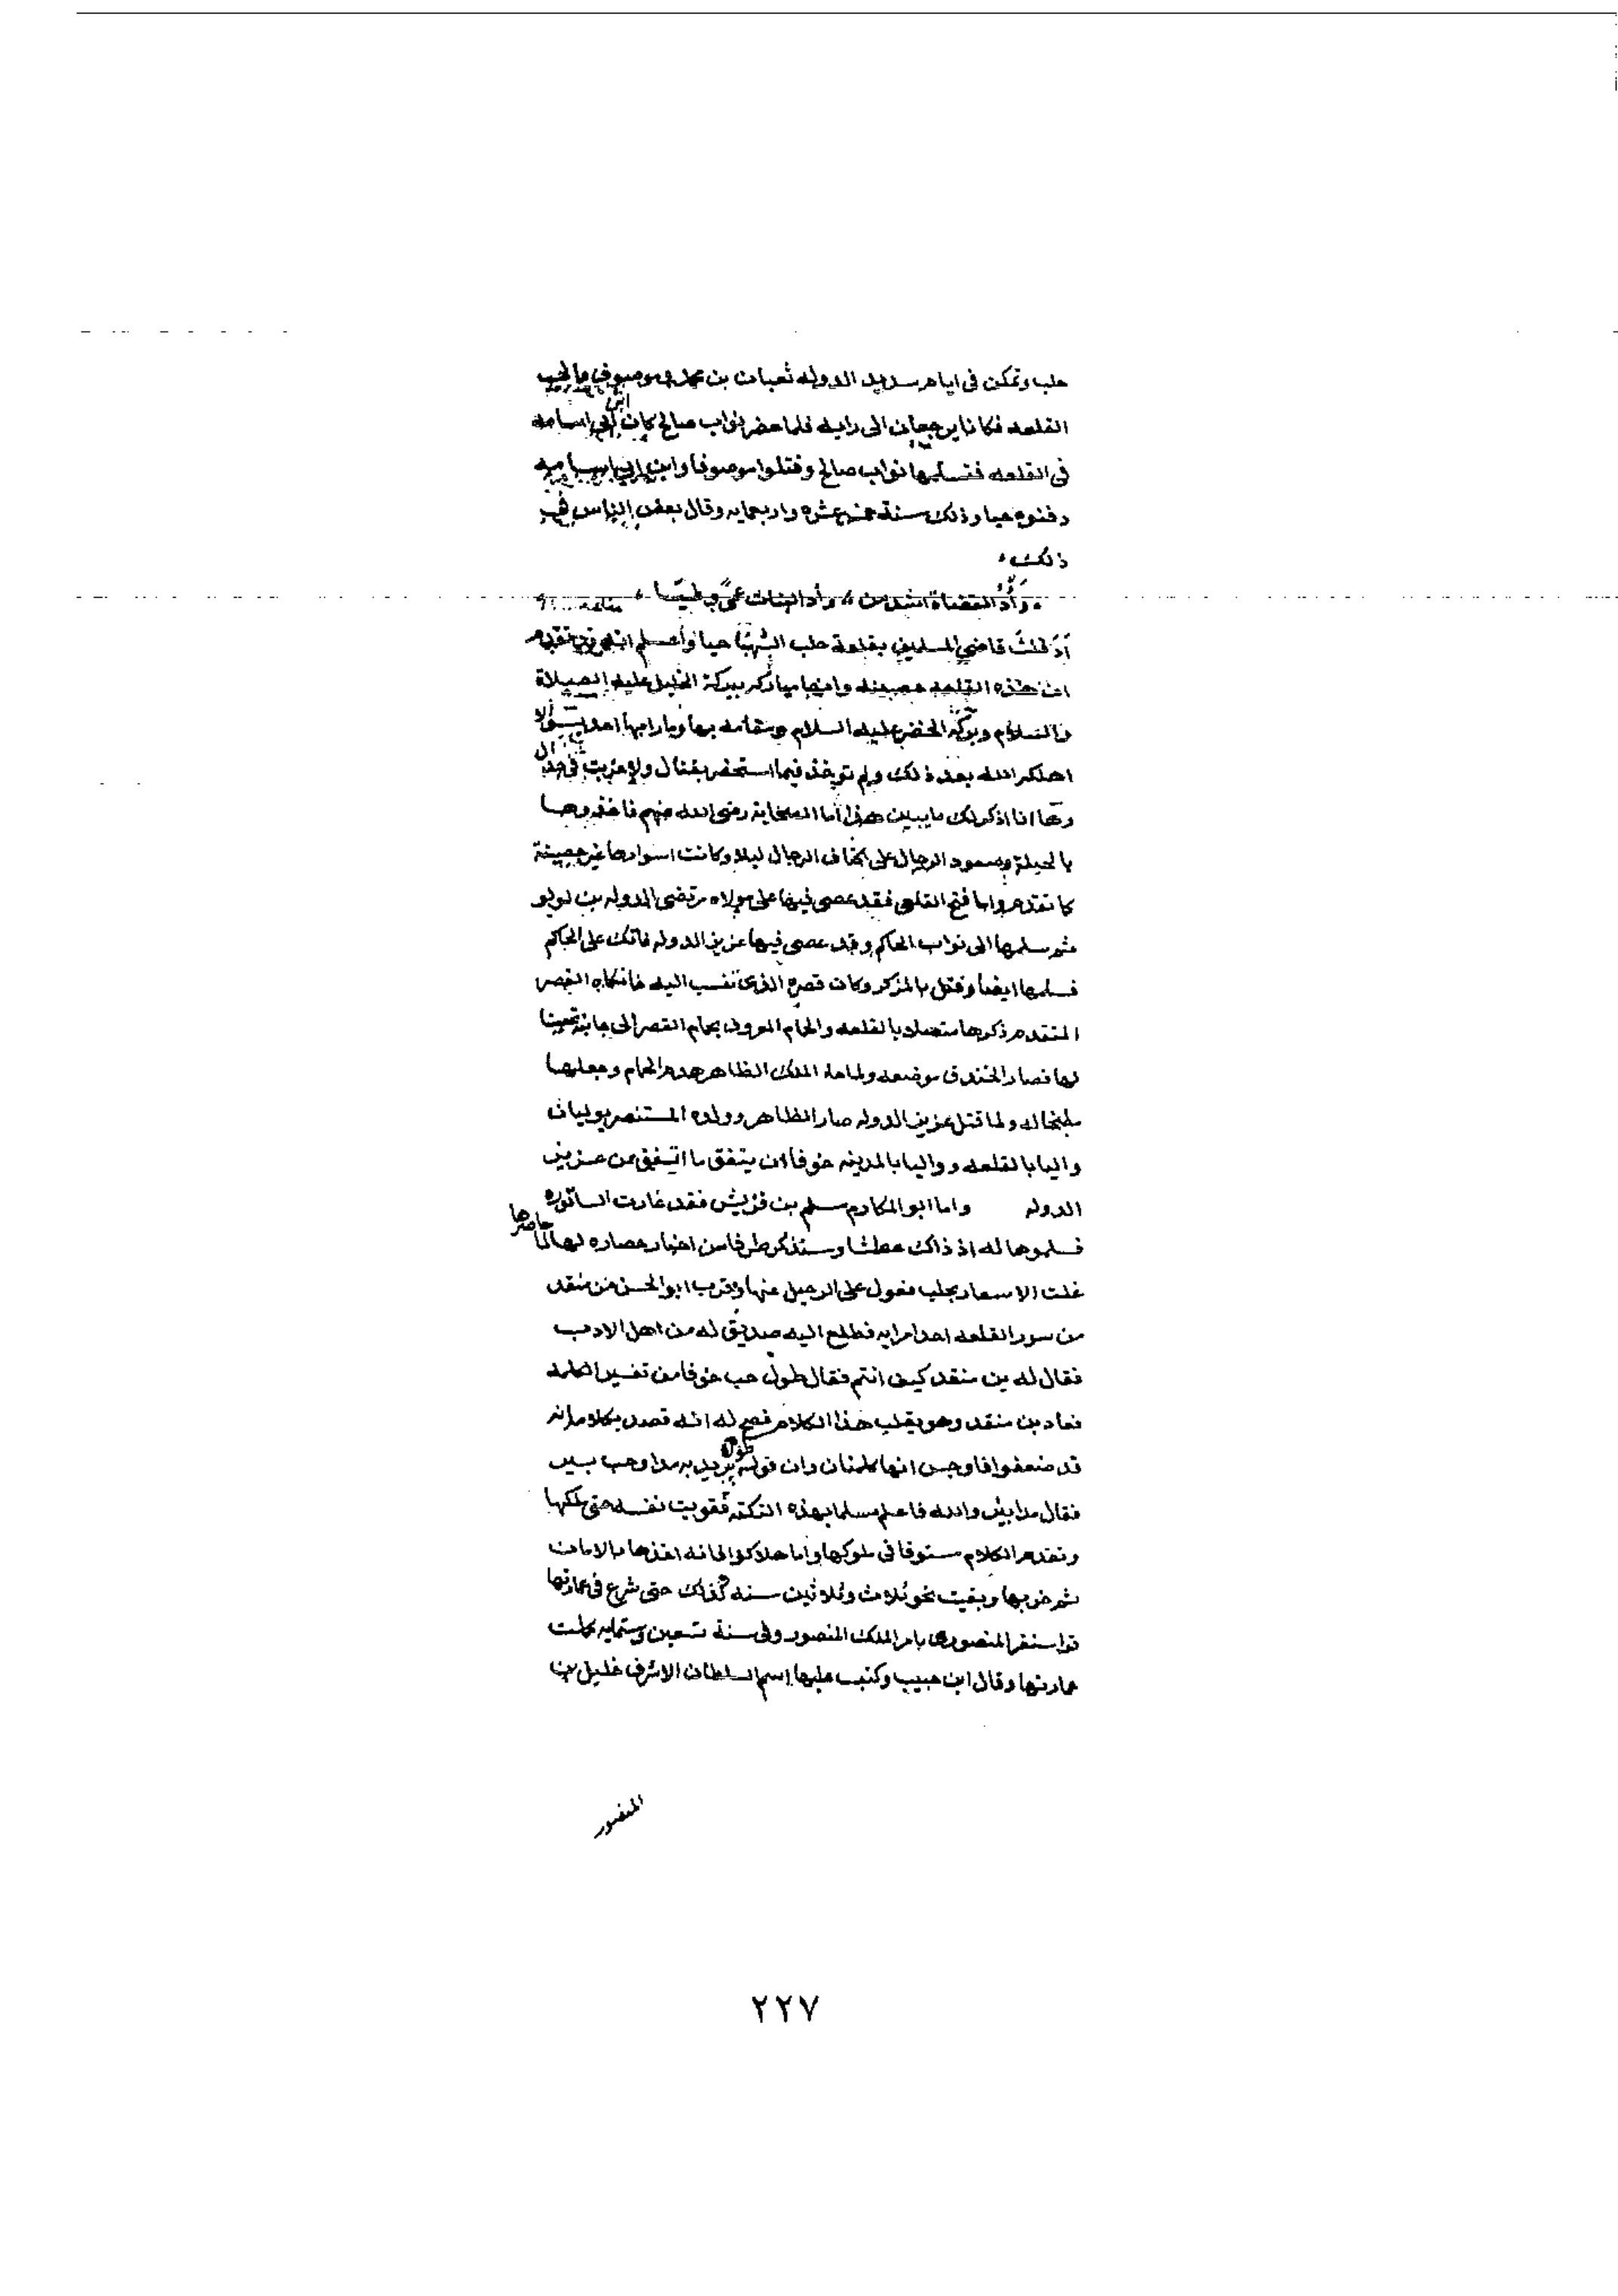 حلب وتمكن فى ايام سديد الدوله ثعبان بن محمد وموصوف والى
القلعه فكانا يرجعان الى رايه فلما حضر نواب صالح كان ابن أبي اسامه
فى القلعه فتسلمها نواب صالح وقتلوا موصوفا وابن ابي اسامه
دفنوه حيا وذلك سنة خمس عشره واربعمايه وقال بعض الناس في
ذلك
وَأْدُ القضاة اشد من وأد البنات عمىً وغيّا
أدفنتَ قاضي المسلمين بقلعة حلب الشهبا حيا واعلم انه تقدم
ان هذه القلعه حصينه وانها مباركه ببركة الخليل عليه الصلاة
والسلام وبركة الخضر عليه السلام ومقامه بها وما رامها احد بسؤ الا
اهلكه الله بعد ذلك ولم تؤخذ فيما استحضر بقتال
وها انا اذكر لك ما يبين هذا أما الصحابة رضى الله عنهم فاخذوها
بالحيلة وصعود الرجال على اكتاف الرجال ليلا وكانت اسوارها غير حصينة
كما تقدم واما فتح القلعى فقد عصى فيها على مولاه مرتضى الدوله بن لولو
ثم سلمها الى نواب الحاكم وقد عصى فيها عزيز الدوله فاتك على الحاكم
فسلمها ايضا وقتل بالمركز وكان قصره الذى تنسب اليه خانكاه القصر
المتقدم ذكرها متصلا بالقلعه والحمام المعروف بحمام القصر الى جانبه تحصينا
لها فصار الخندق موضعه ولما الملك الظاهر هدم الحمام وجعلها
مطبخا له ولما قتل عزيز الدوله صار الظاهر وولده المستنصر يوليان
واليا بالقلعه وواليا بالمدينه خوفا ان يتفق ما اتفق من عزيز
الدوله واما ابو المكارم مسلم بن قريش فقد غارت الساتوره
فسلموها له اذ ذاك عطشا وسنذكر طرفا من اخبار حصاره لها لما حاصرها
غلت الاسعار بحلب فعول على الرحيل عنها وقرب ابو الحسن من منقد
من سور القلعه احد امرايه فطلع اليه صديق له من اهل الادب
فقال له بن منقد كيف انتم فقال طول حب خوفا من تفسير الكلمه
فعاد بن منقد وهو يقلب هذا الكلام فصح له انه قصد بكلامه انه
قد ضعفوا فاوجس انها كلمتان وان قوله طول يريد به مدا وحب بير
فقال مدابير والله فاعلم مسلما بهذه النكته فقويت نفسه حتى ملكها
وتقدم الكلام مستوفا فى ملوكها واما هلاكو الخانه اخذها بالامان
ثم خربها وبقيت نحو ثلاث وثلاثين سنه كذلك حتى شرع فى عمارتها
قراسنقر المنصورى بامر الملك المنصور وفى سنة تسعين وستمايه كملت
عمارتها وقال ابن حبيب وكتب عليها اسم السلطان الاشرف خليل بن
المنصور
٢٢٧